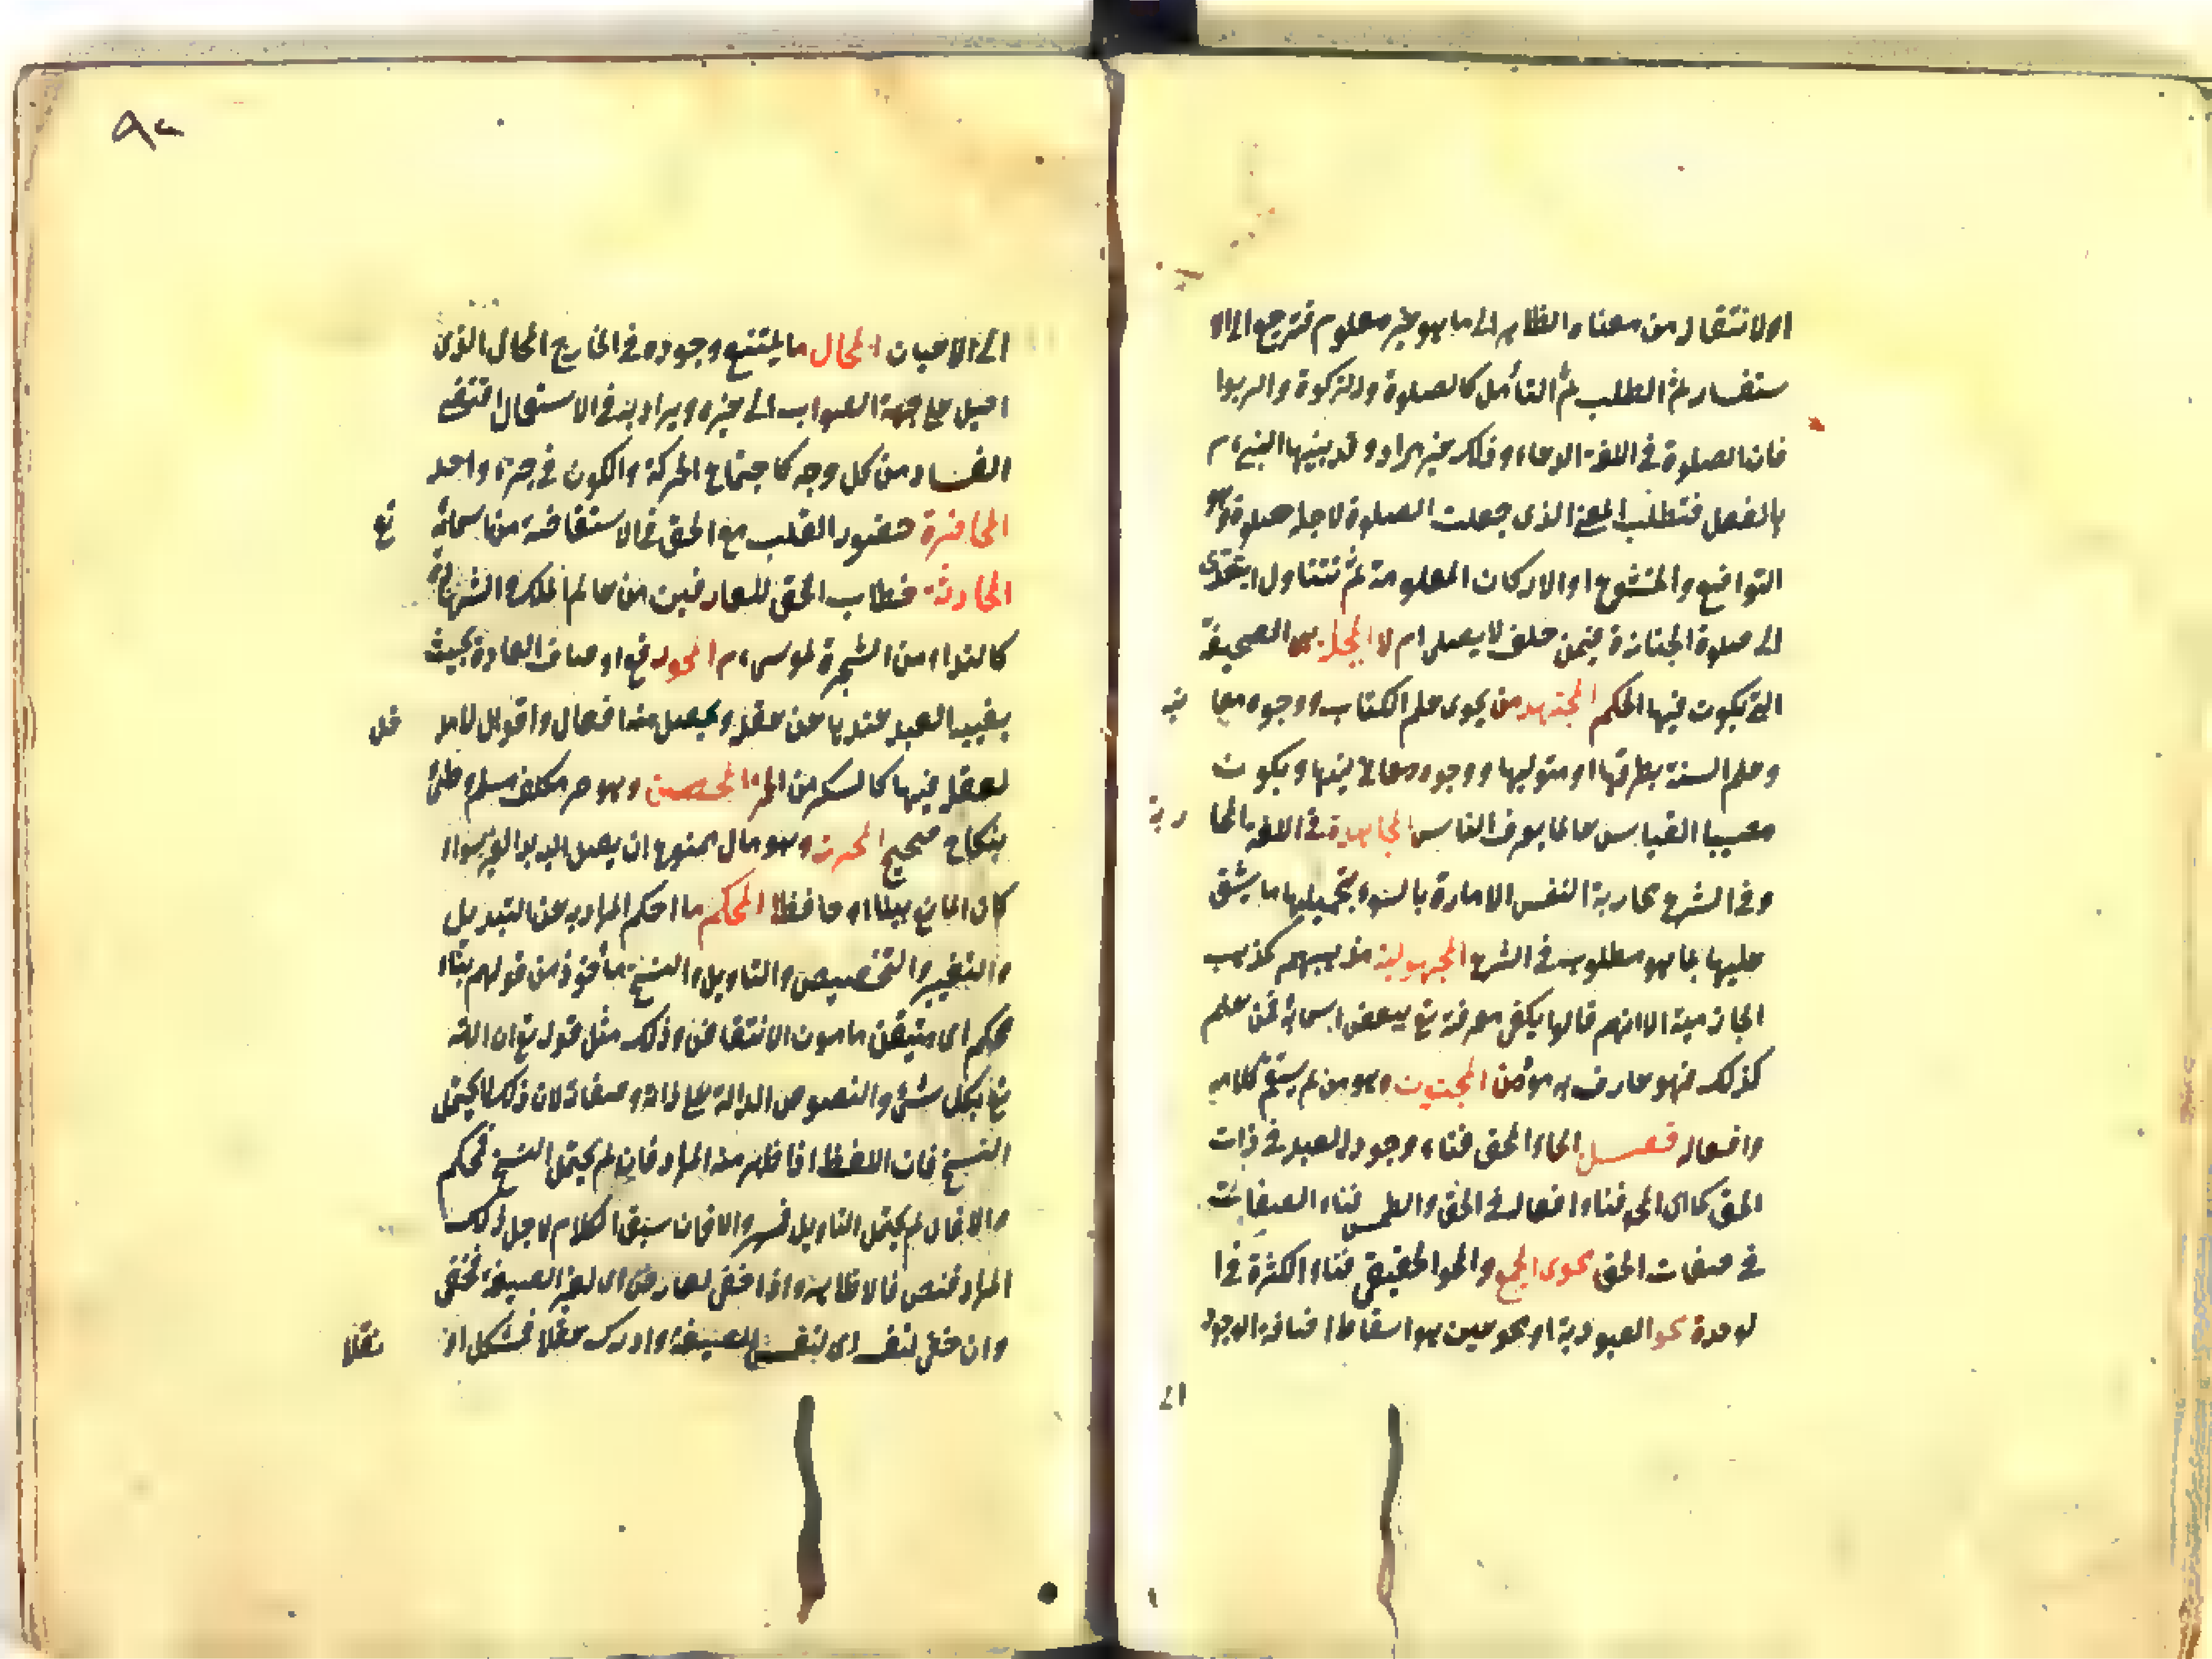 او لانتقاله من معناه الظاهر الى ما هو غير معلوم فترجع الى الا
ستفسار ثم الطلب ثم التأمل كالصلوة والزكوة والربوا
فان الصلوة في اللغة الدعاء وذلك غير مراد وقد بينها النبي ء م
بالفعل فتطلب المعنى الذي جعلت الصلوة لاجله صلوة اهو
التواضع والخشوع او الاركان المعلومة ثم نتناول ايتعدى
الى صلوة الجنازة فيمن حلف لا يصلي ام لا المجلة هي الصحيفة
التي يكون فيها الحكم المجتهد من يحوى علم الكتاب ووجوه معا نيه
وعلم السنة بطرقها ومتونها ووجوه معانيها ويكون
مصيبا القياس عالما بعرف الناس المجاهدة في اللغة المحا ربة
وفي الشرع محاربة النفس الامارة بالسوء بتحميلها ما يشق
عليها بما هو مطلوب في الشرع المجهولية مذهبهم كمذهب
الجازمية الا انهم قالوا يكفي معرفته تع ببعض اسمائه فمن علم
كذلك فهو عارف به مؤمن المجنون وهو من لم يستقم كلامه
وافعاله فصل الحاء المحق فناء وجود العبد في ذات
الحق كما ان المحو فناء افعاله في الحق والطمس فناء الصفات
في صفات الحق محو الجمع والمحو الحقيقي فناء الكثرة في ا
لوحدة محو العبودية ومحو عين هو اسقاط اضافة الوجود
الى
٨٢
الى الاعيان المحال ما يمتنع وجوده في الخارج المحال الذي
احيل على جهة الصواب الى غيره ويراد به في الاستعمال اقتضى
الفساد من كل وجه كاجتماع الحركة والكون في جزء واحد
المحاضرة حضور القلب مع الحق في الاستفاضة من اسمائه تع
المحادثة خطاب الحق للعارفين من عالم الملك والشهادة
كالنداء من الشجرة لموسى ء م المحو رفع اوصاف العادة بحيث
يغيب العبد عندها عن عقله ويحصل منه افعال واقوال لا مد خل
لعقله فيها كالسكر من الخمر المحصن وهو حر مكلف مسلم وطئ
بنكاح صحيح المحرز وهو مال ممنوع ان يصل اليه يد الغير سواء
كان المانع بيتا او حافظا المحكم ما احكم المراد به عن التبديل
والتغيير والتخصيص والتاويل والنسخ مأخوذ من قولهم بناء
محكم اي متيقن مأمون الانتقاض وذلك مثل قوله تع ان الله
تع بكل شئ والنصوص الدالة على ذاته وصفاته لان ذلك لا يحتمل
النسخ فان اللفظ اذا ظهر منه المراد فان لم يحتمل النسخ فمحكم
والا فان لم يحتمل التاويل ففسر والا فان سيق الكلام لاجل ذلك
المراد فنص والا فظاهر واذا خفى لعارض اي لغير الصيغة فخفي
وان خفى لنفسه اي لنفس الصيغة وادرك عقلا فمشكل او نقلا